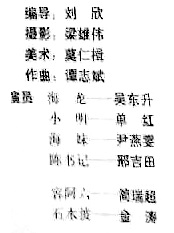 编导：刘欣
摄影：梁雄伟
美术：莫仁楫
作曲：谭志斌
演员 海 吴东升
小明 单红
海妹 尹燕雯
陈书记 邢吉田
容阿六 简瑞超
石木波 金涛